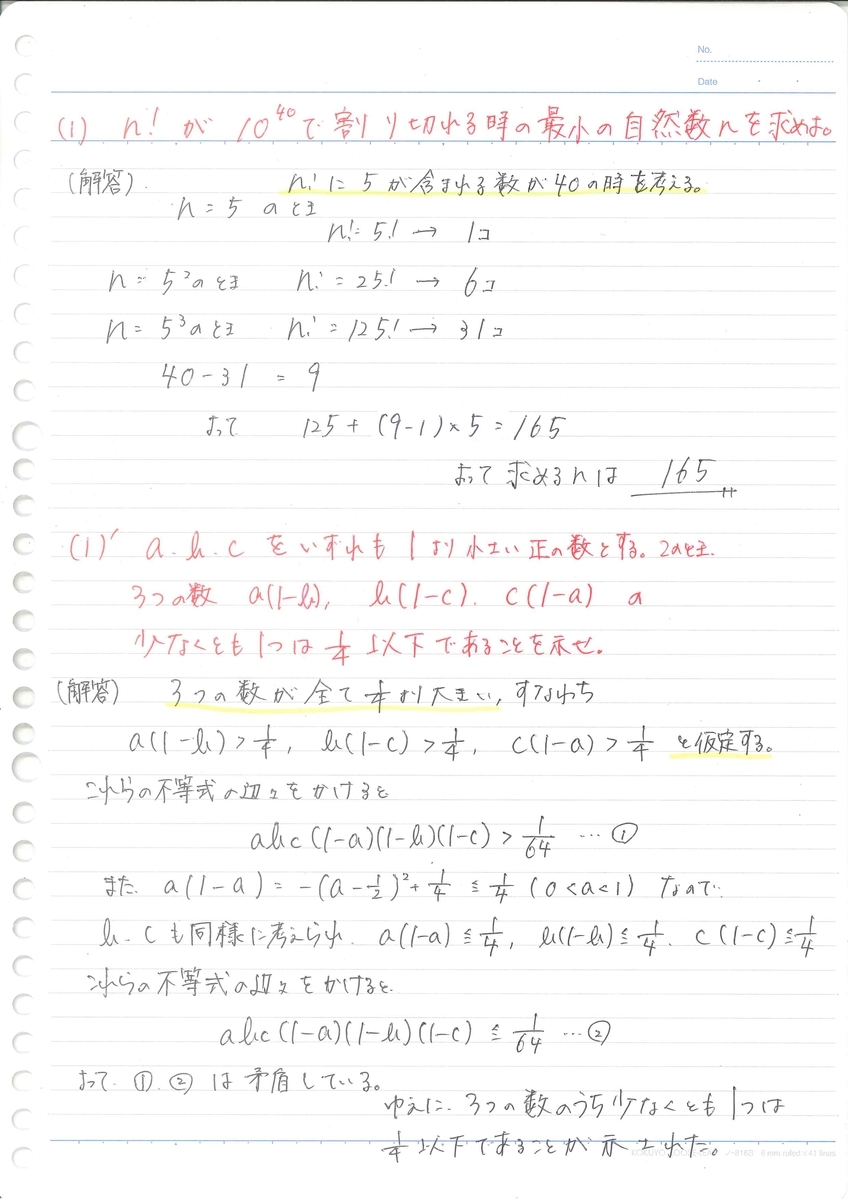 No.
Date
(1) n! が 10^40で割り切れる時の最小の自然数nを求めよ。
(解答) n!に5が含まれる数が40の時を考える。
n=5 のとき
n!=5! → 1コ
n=5²のとき n!=25! → 6コ
n=5³のとき n!=125! → 31コ
40-31 = 9
よって 125+(9-1)×5=165
よって求めるnは 165
(1)' a.b.c をいずれも1より小さい正の数とする。このとき.
3つの数 a(1-b), b(1-c). c(1-a) の
少なくとも1つは 1/4 以下であることを示せ。
(解答) 3つの数が全て1/4より大きい,すなわち
a(1-b)>1/4, b(1-c)>1/4, c(1-a)>1/4 と仮定する。
これらの不等式の辺々をかけると
abc(1-a)(1-b)(1-c)>1/64 …①
また. a(1-a)=-(a-1/2)²+1/4≦1/4 (0<a<1) なので.
b.cも同様に考えられ. a(1-a)≦1/4, b(1-b)≦1/4. c(1-c)≦1/4
これらの不等式の辺々をかけると.
abc(1-a)(1-b)(1-c)≦1/64 …②
よって. ①.②は矛盾している。
ゆえに. 3つの数のうち少なくとも1つは
1/4以下であることが示された。
6 mm ruled × 41 lines